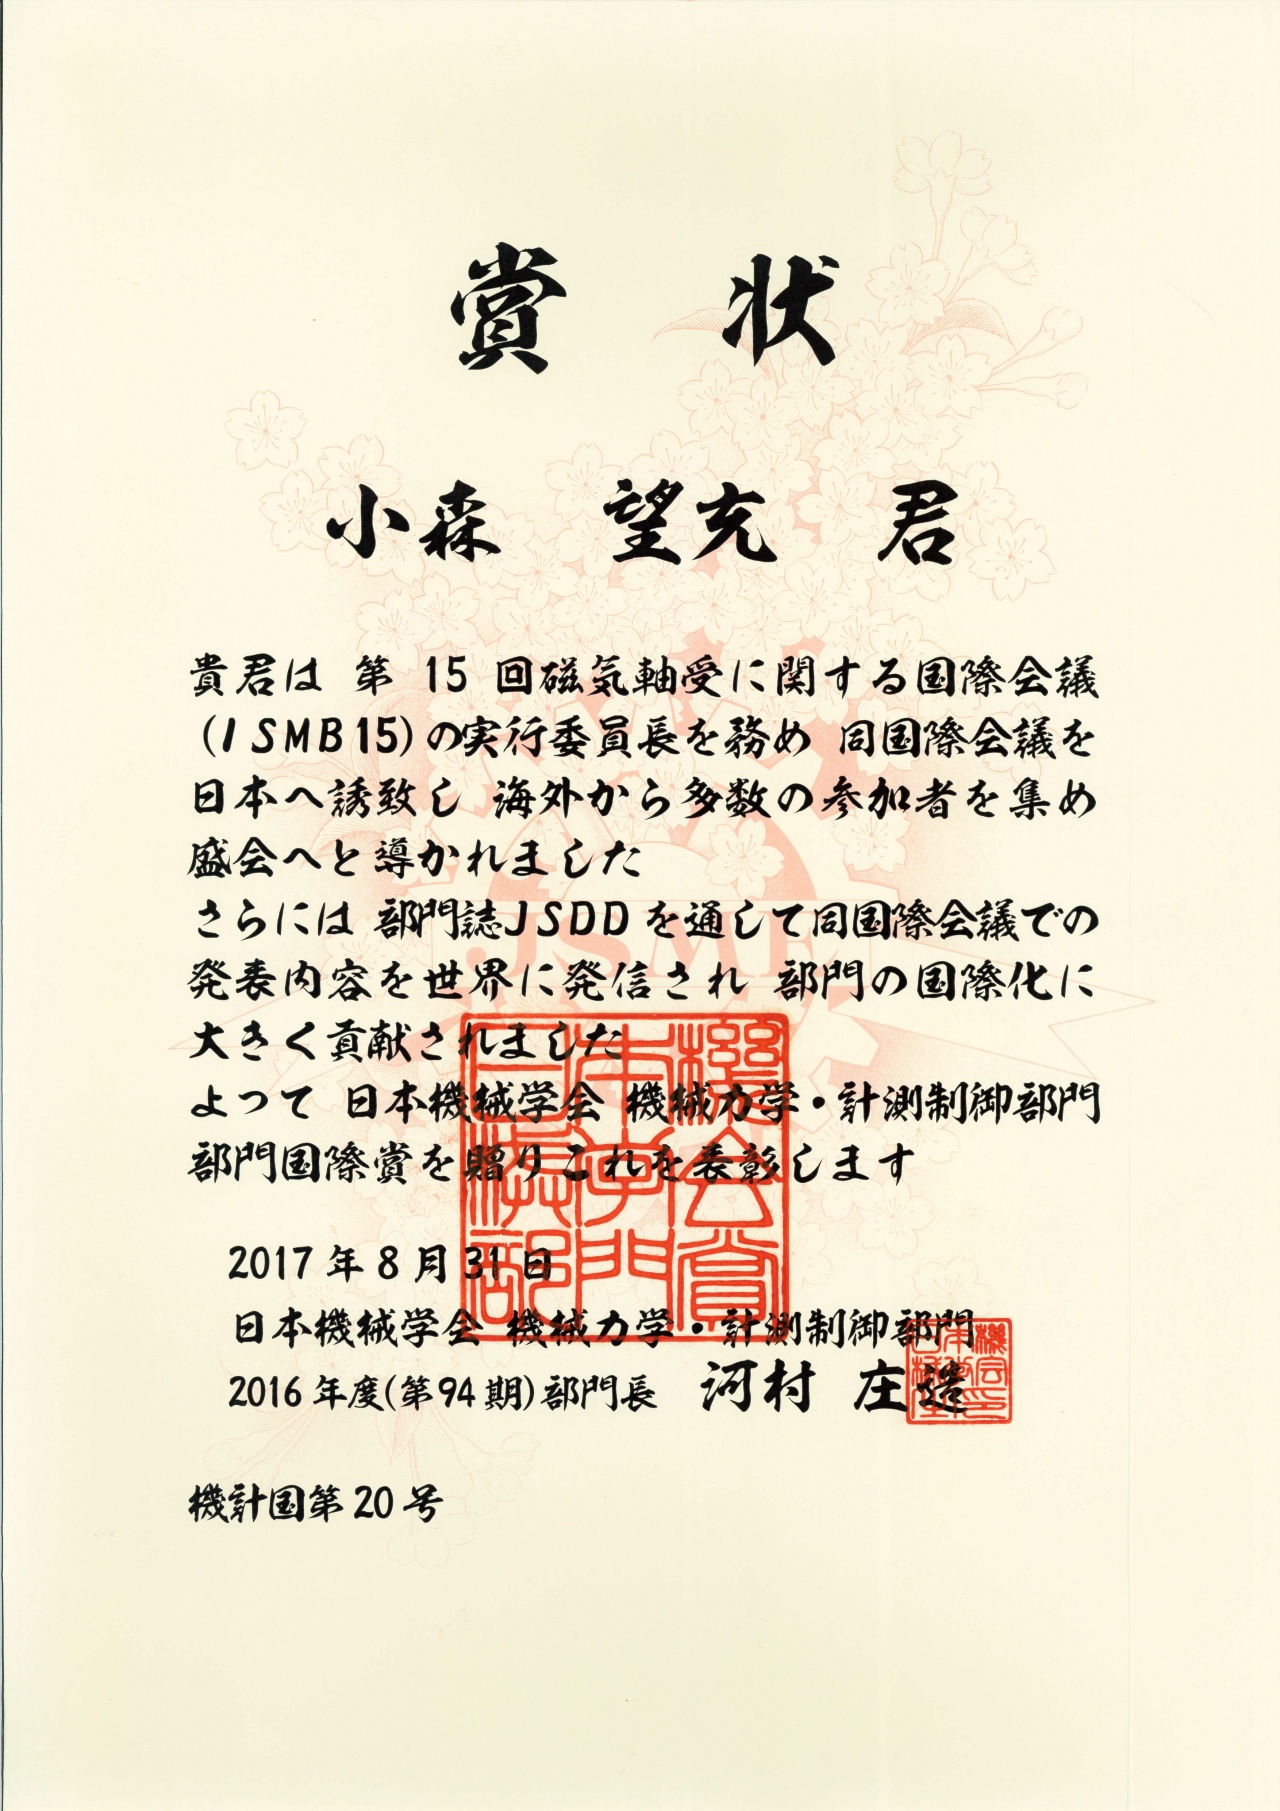 賞 状
小森 望充 君
貴君は 第 15 回磁気軸受に関する国際会議
(ISMB15)の実行委員長を務め 同国際会議を
日本へ誘致し 海外から多数の参加者を集め
盛会へと導かれました
さらには 部門誌JSDDを通して同国際会議での
発表内容を世界に発信され 部門の国際化に
大きく貢献されました
よって 日本機械学会 機械力学・計測制御部門
部門国際賞を贈りこれを表彰します
2017 年 8 月 31 日
日本機械学会 機械力学・計測制御部門
2016 年度(第94期)部門長 河村 庄造
機計国第 20 号
JSME